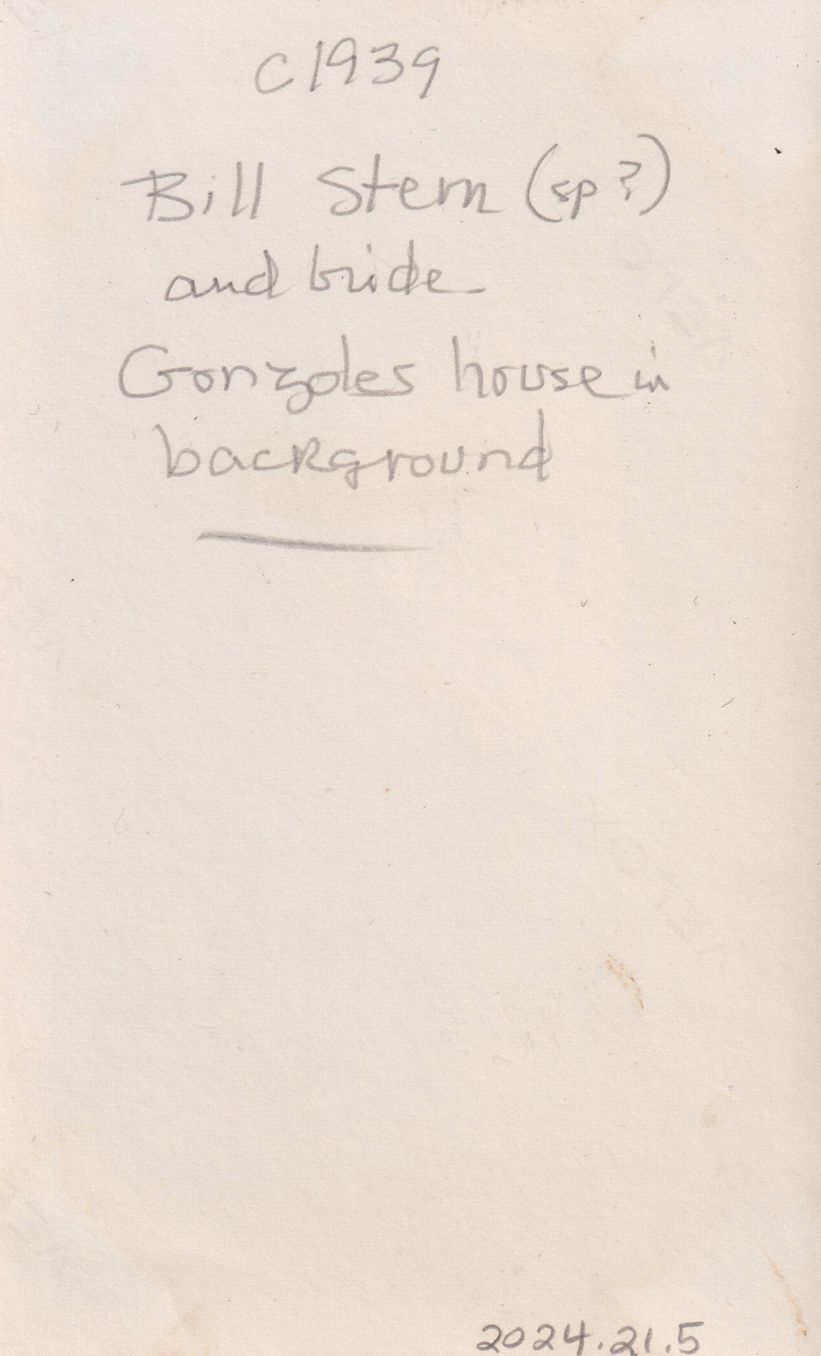 c1939
Bill Stern (sp?)
and bride
Gonzoles house in
background
VELOX
2024.21.5